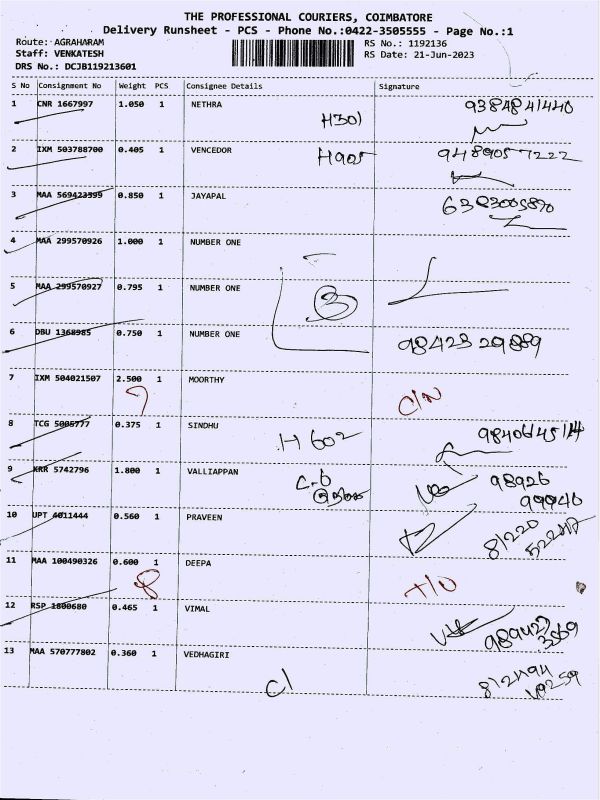 THE PROFESSIONAL COURIERS, COIMBATORE
Delivery Runsheet - PCS - Phone No.:0422-3505555 - Page No.:1
Route: AGRAHARAM RS No.: 1192136
Staff: VENKATESH RS Date: 21-Jun-2023
DRS No.: DCJB119213601
S No Consignment No Weight PCS Consignee Details Signature
1 CNR 1667997 1.050 1 NETHRA H301 9384841440
2 IXM 503788700 0.405 1 VENCEDOR H905 9489057222
3 MAA 569423399 0.850 1 JAYAPAL 6383005890
4 MAA 299570926 1.000 1 NUMBER ONE
5 MAA 299570927 0.795 1 NUMBER ONE 3
6 DBU 1368985 0.750 1 NUMBER ONE 98423 29889
7 IXM 504021507 2.500 1 MOORTHY C/N
8 TCG 5005777 0.375 1 SINDHU H 602
9 KRR 5742796 1.800 1 VALLIAPPAN 98926
99946
10 UPT 4011444 0.560 1 PRAVEEN 81220
11 MAA 100490326 0.600 1 DEEPA
12 RSP 1800680 0.465 1 VIMAL 989427
3569
13 MAA 570777802 0.360 1 VEDHAGIRI